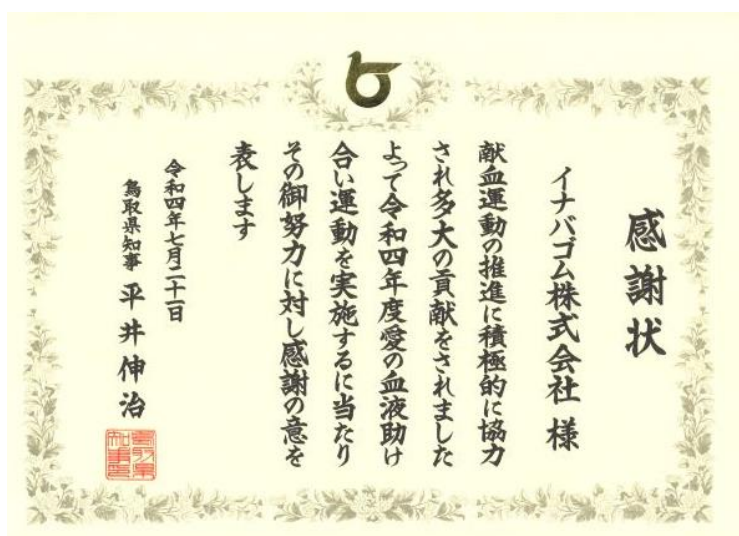 感謝状
イナバゴム株式会社 様
献血運動の推進に積極的に協力
され多大の貢献をされました
よって令和四年度愛の血液助け
合い運動を実施するに当たり
その御努力に対し感謝の意を
表します
令和四年七月二十一日
鳥取県知事 平井伸治